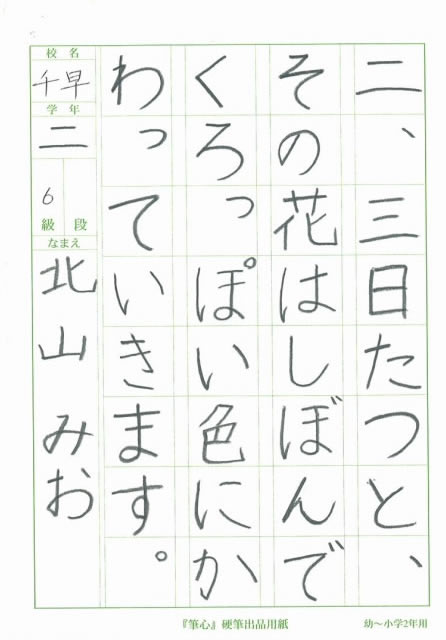 二、三日たつと、
その花はしぼんで
くろっぽい色にか
わっていきます。
校名
千早
学年
二
6
級 段
なまえ
北山みお
『筆心』硬筆出品用紙
幼〜小学2年用